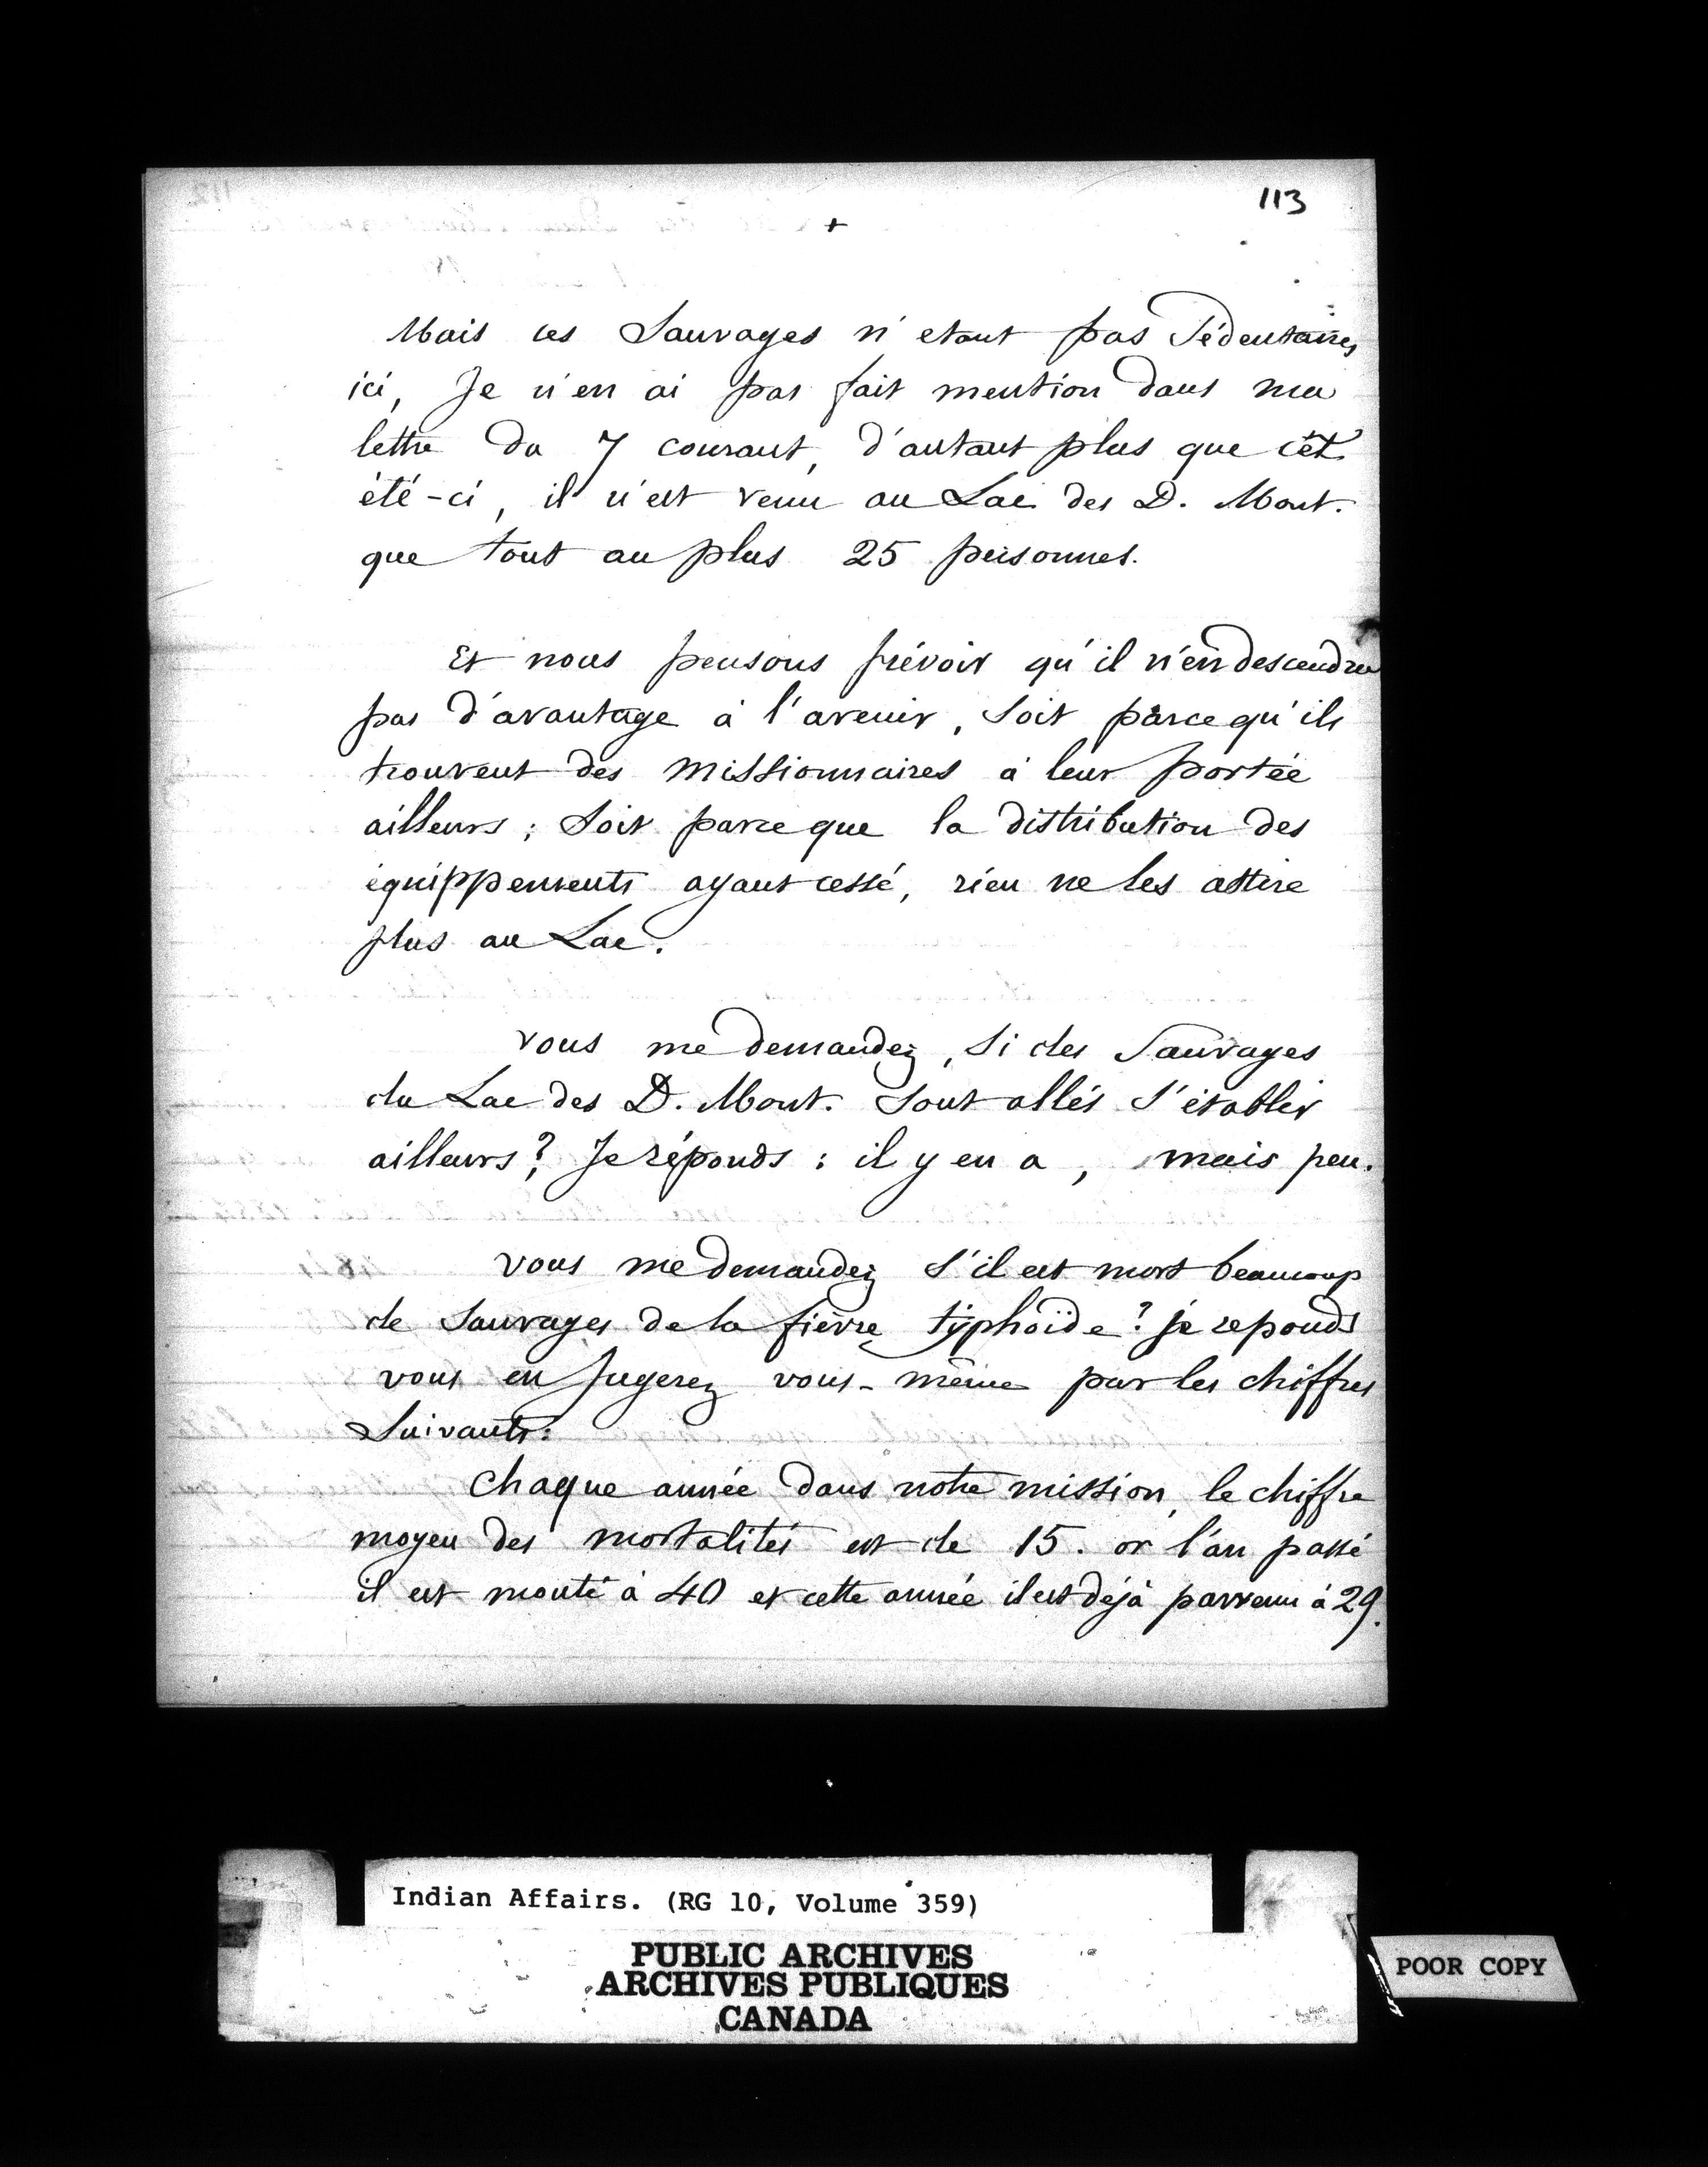 113
+
Mais ces Sauvages n'etant pas Sédentaires
ici, Je n'en ai pas fait mention dans ma
lettre du 7 courant, d'autant plus que cet
été-ci, il n'est venu au Lac des D. Mont.
que tout au plus 25 personnes.
Et nous pensons prévoir qu'il n'en descendra
pas d'avantage à l'avenir, Soit parcequ'ils
trouvent des missionnaires à leur portée
ailleurs; Soit parceque la distribution des
équippements ayant cessé, rien ne les attire
plus au Lac.
Vous me demandez, Si des Sauvages
du Lac des D. Mont. Sont allés S'établir
ailleurs? Je réponds: il y en a, mais peu.
Vous me demandez S'il est mort beaucoup
de Sauvages de la fièvre typhoïde? je reponds
vous en Jugerez vous-même par les chiffres
Suivants:
Chaque année dans notre mission, le chiffre
moyen des mortalités est de 15. or l'an passé
il est monté à 40 et cette année il est déjà parvenu à 29.
Indian Affairs. (RG 10, Volume 359)
PUBLIC ARCHIVES
ARCHIVES PUBLIQUES
CANADA
POOR COPY